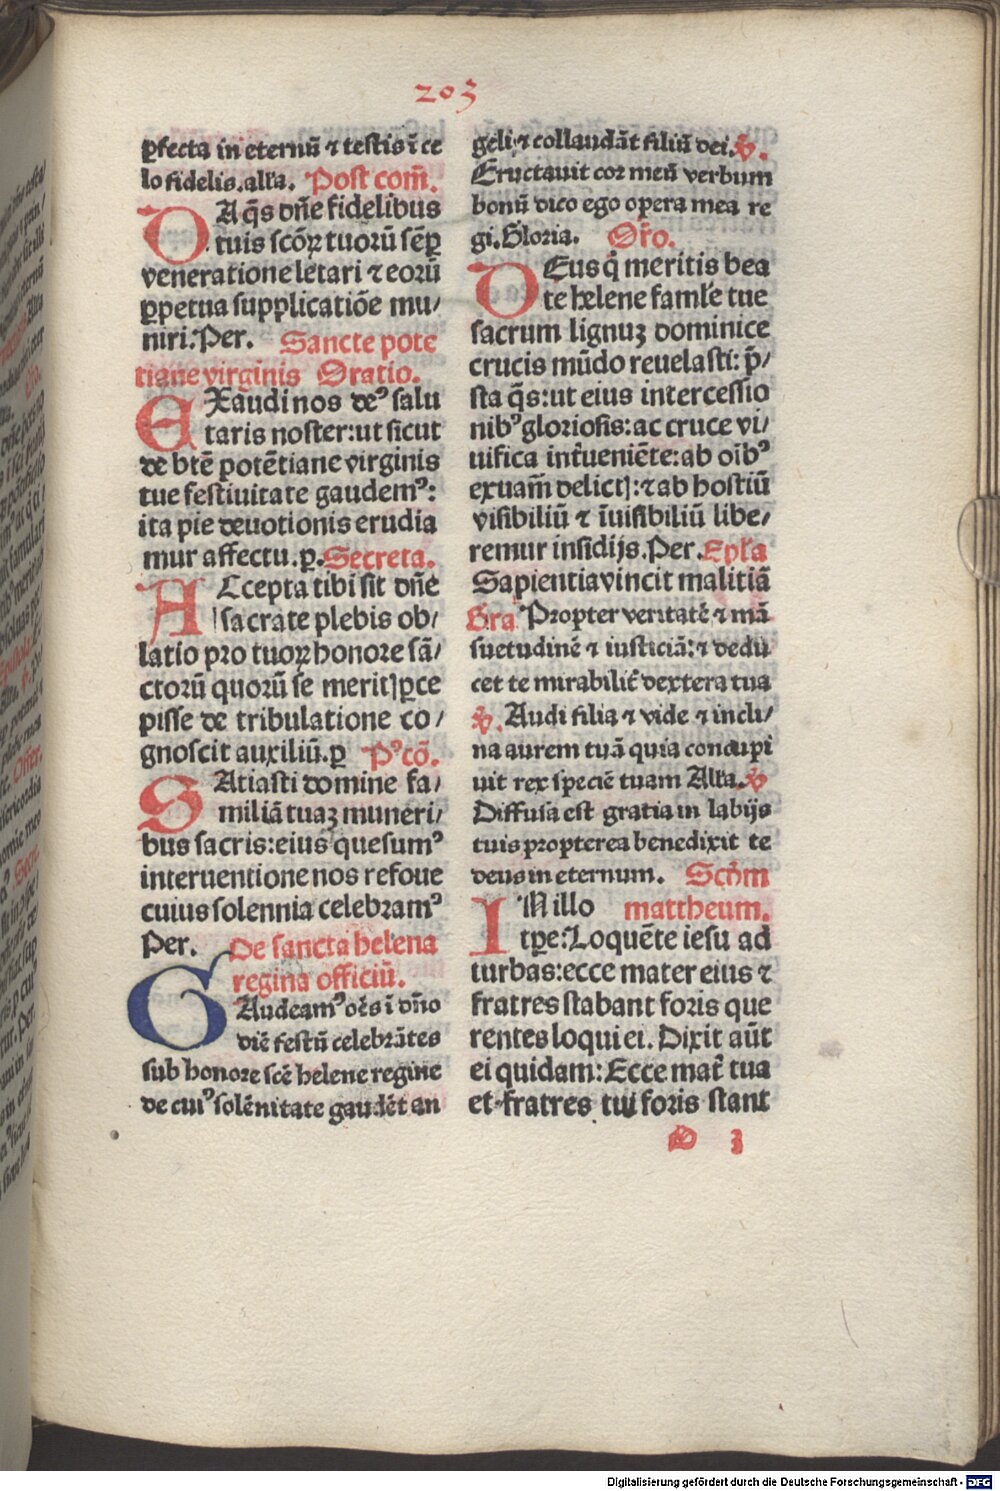 203
ꝑfecta in eternũ ⁊ testis ĩ ce
lo fidelis. alľa. Post com̃.
DA q̃s dñe fidelibus
tuis scõꝝ tuorũ sẽꝑ
veneratione letari ⁊ eorũ
ꝑpetua supplicatiõe mu/
niri. Per. Sancte pote
tiane virginis Oratio.
EXaudi nos deꝰ salu
taris noster: ut sicut
de btẽ potẽtiane virginis
tue festiuitate gaudemꝰ:
ita pie deuotionis erudia
mur affectu. ꝑ. Secreta.
ACcepta tibi sit dñe
sacrate plebis ob/
latio pro tuoꝝ honore sã/
ctorũ quorũ se meritꝭ ꝑce
pisse de tribulatione co/
gnoscit auxiliũ. ꝑ Pꝰ cõ.
SAtiasti domine fa/
miliã tuaꝫ muneri/
bus sacris: eiusꝗ quesumꝰ
interuentione nos refoue
cuius solennia celebramꝰ
Per. De sancta helena
regina officiũ.
GAudeamꝰ oẽs ĩ dño
diẽ festũ celebrãtes
sub honore scẽ helene regine
de cuiꝰ solẽnitate gaudẽt an
geli ⁊ collaudãt filiũ dei. ꝟ.
Eructauit cor meũ verbum
bonũ dico ego opera mea re
gi. Gloria. Oro.
DEus q̃ meritis bea
te helene famľe tue
sacrum lignuꝫ dominice
crucis mũdo reuelasti: p̃/
sta q̃s: ut eius intercessio
nibꝰ gloriosis: ac cruce vi/
uifica int̃ueniẽte: ab oĩbꝰ
exuam̃ delictꝭ: ⁊ ab hostiũ
visibiliũ ⁊ ĩuisibiliũ libe/
remur insidijs. Per. Epľa
Sapientia vincit malitiã
Gra Propter veritatẽ ⁊ mã
suetudinẽ ⁊ iusticiã: ⁊ dedu
cet te mirabilit̃ dextera tua
ꝟ. Audi filia ⁊ vide ⁊ incli/
na aurem tuã quia concupi
uit rex speciẽ tuam Alľa. ꝟ
Diffusa est gratia in labijs
tuis propterea benedixit te
deus in eternum. Scd̃m
IN illo mattheum.
tꝑe: Loquẽte iesu ad
turbas: ecce mater eius ⁊
fratres stabant foris que
rentes loqui ei. Dixit aũt
ei quidam: Ecce mat̃ tua
et fratres tui foris stant
D 3
Digitalisierung gefördert durch die Deutsche Forschungsgemeinschaft - DFG